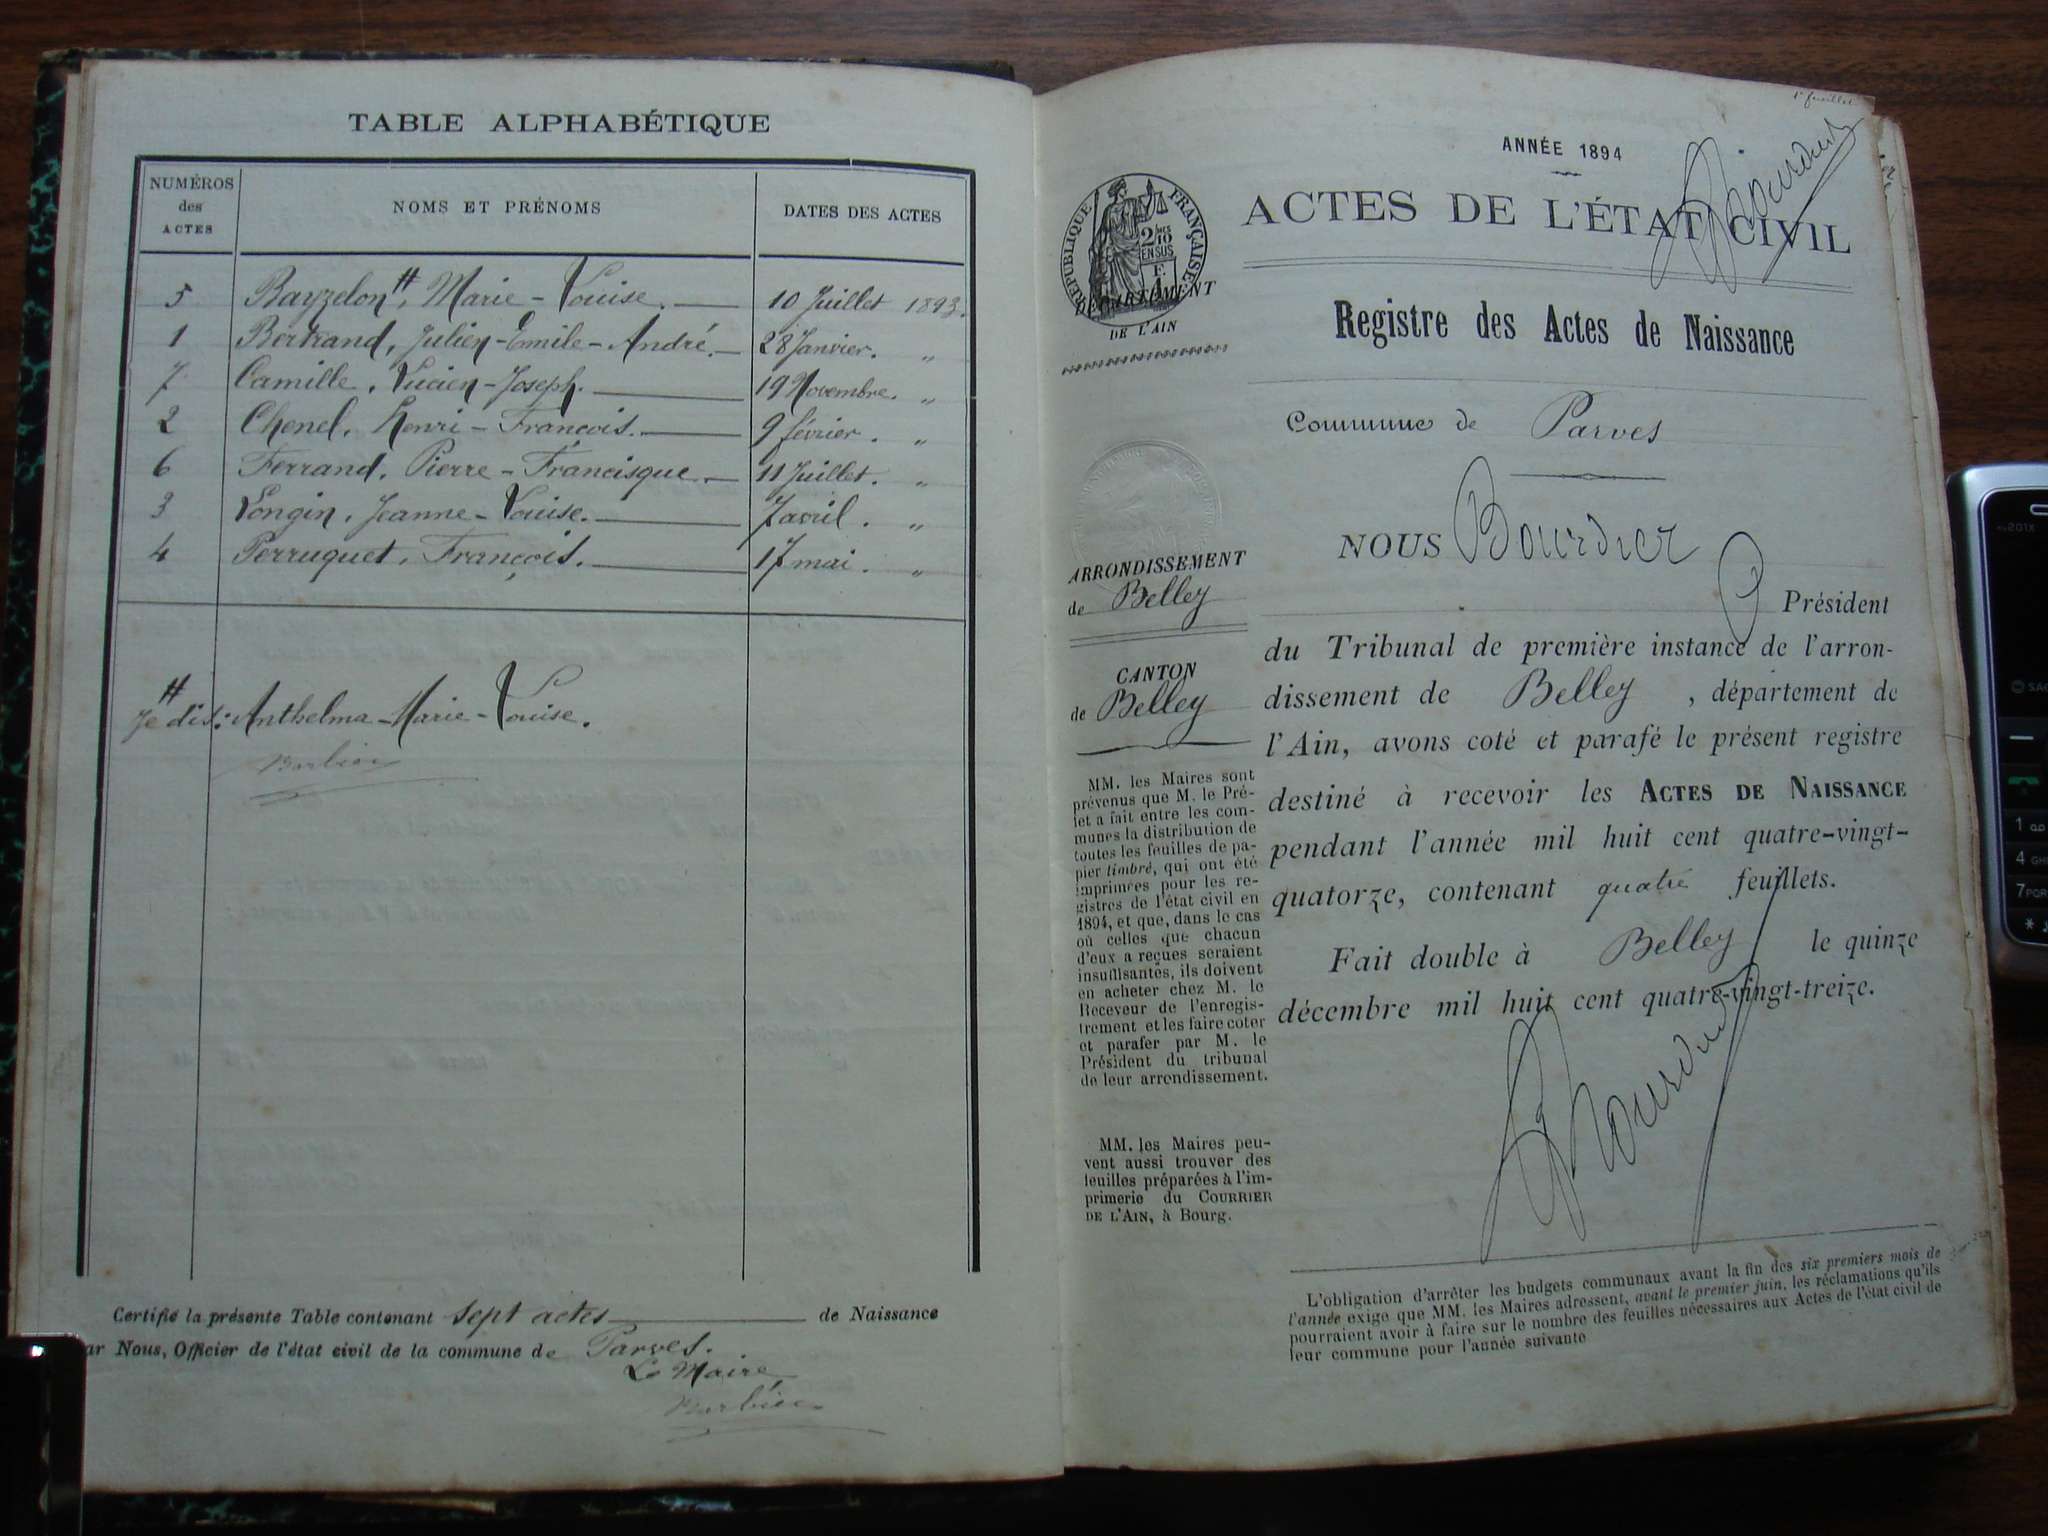 TABLE ALPHABÉTIQUE
NUMÉROS des ACTES NOMS ET PRÉNOMS DATES DES ACTES
5 Bayzelon #, Marie-Louise. 10 Juillet 1893.
1 Bertrand, Julien-Emile-André. 28 Janvier. "
7 Camille, Lucien-Joseph. 19 Novembre. "
2 Chenel, Henri-François. 9 février. "
6 Ferrand, Pierre-Francisque. 11 Juillet. "
3 Longin, Jeanne-Louise. 7 avril. "
4 Perruquet, François. 17 mai. "
#
Je dis: Anthelma-Marie-Louise.
Barbier
Certifié la présente Table contenant sept actes de Naissance
ar Nous, Officier de l'état civil de la commune de Parves.
Le Maire
Barbier
1er feuillet
ANNÉE 1894
Bourdier
ACTES DE L'ÉTAT CIVIL
RÉPUBLIQUE FRANÇAISE
2 fres
10
EN SUS
DÉPARTEMENT
DE L'AIN
Registre des Actes de Naissance
Commune de Parves
NOUS Bourdier
Président
du Tribunal de première instance de l'arron-
dissement de Belley, département de
l'Ain, avons coté et parafé le présent registre
destiné à recevoir les ACTES DE NAISSANCE
pendant l'année mil huit cent quatre-vingt-
quatorze, contenant quatre feuillets.
Fait double à Belley le quinze
décembre mil huit cent quatre-vingt-treize.
Bourdier
ARRONDISSEMENT
de Belley
CANTON
de Belley
MM. les Maires sont
prévenus que M. le Pré-
fet a fait entre les com-
munes la distribution de
toutes les feuilles de pa-
pier timbré, qui ont été
imprimées pour les re-
gistres de l'état civil en
1894, et que, dans le cas
où celles que chacun
d'eux a reçues seraient
insuffisantes, ils doivent
en acheter chez M. le
Receveur de l'enregis-
trement et les faire coter
et parafer par M. le
Président du tribunal
de leur arrondissement.
MM. les Maires peu-
vent aussi trouver des
feuilles préparées à l'im-
primerie du COURRIER
DE L'AIN, à Bourg.
L'obligation d'arrêter les budgets communaux avant la fin des six premiers mois de
l'année exige que MM. les Maires adressent, avant le premier juin, les réclamations qu'ils
pourraient avoir à faire sur le nombre des feuilles nécessaires aux Actes de l'état civil de
leur commune pour l'année suivante